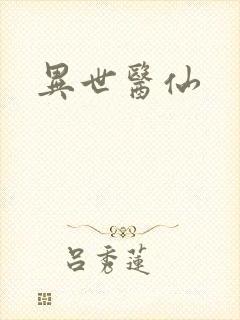 異世醫仙
呂秀蓮